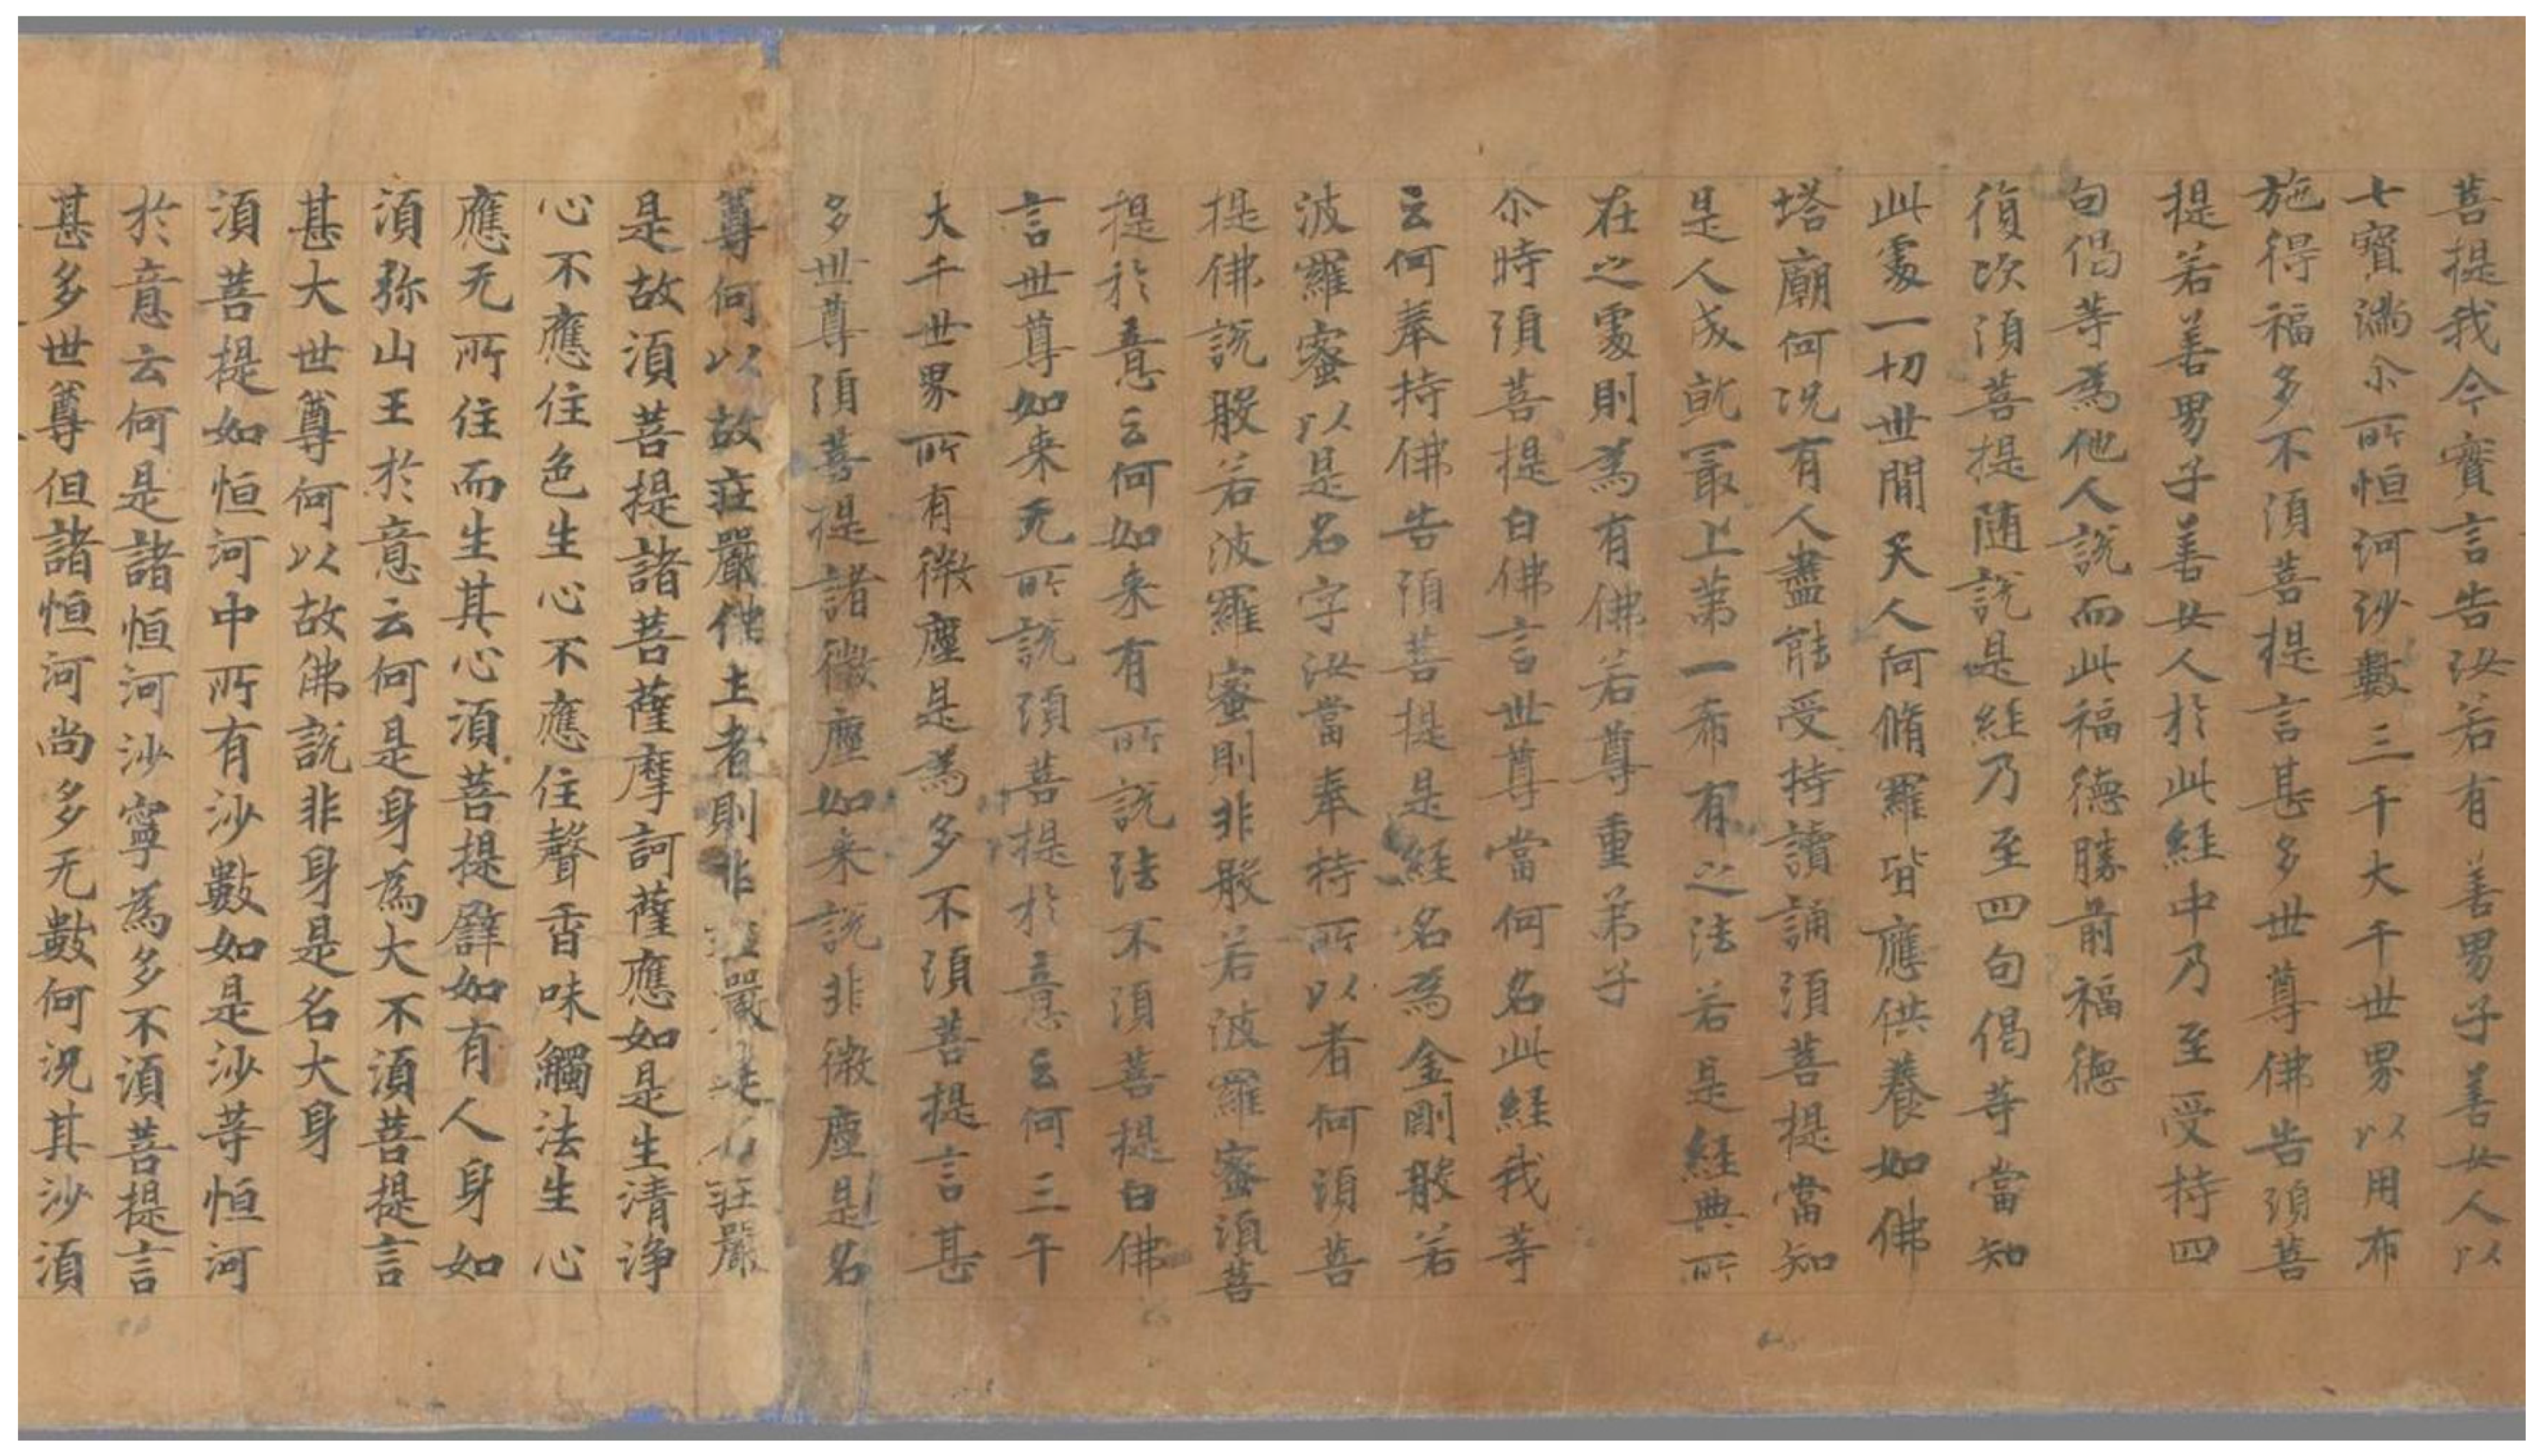 菩提我今實言告汝若有善男子善女人以
七寶滿尒所恒河沙數三千大千世界以用布
施得福多不須菩提言甚多世尊佛告須菩
提若善男子善女人於此経中乃至受持四
句偈等為他人說而此福德勝前福德
復次須菩提随說是経乃至四句偈等當知
此處一切世間天人阿脩羅皆應供養如佛
塔廟何況有人盡能受持讀誦須菩提當知
是人成就冣上第一希有之法若是經典所
在之處則為有佛若尊重弟子
尒時須菩提白佛言世尊當何名此経我等
云何奉持佛告須菩提是経名為金剛般若
波羅蜜以是名字汝當奉持所以者何須菩
提佛說般若波羅蜜則非般若波羅蜜須菩
提於意云何如来有所說法不須菩提白佛
言世尊如来无所說須菩提於意云何三千
大千世界所有微塵是為多不須菩提言甚
多世尊須菩提諸微塵如来說非微塵是名
尊何以故莊嚴佛土者則非莊嚴是名莊嚴
是故須菩提諸菩薩摩訶薩應如是生清淨
心不應住色生心不應住聲香味觸法生心
應无所住而生其心須菩提譬如有人身如
須弥山王於意云何是身為大不須菩提言
甚大世尊何以故佛說非身是名大身
須菩提如恒河中所有沙數如是沙等恒河
於意云何是諸恒河沙寧為多不須菩提言
甚多世尊但諸恒河尚多无數何況其沙須